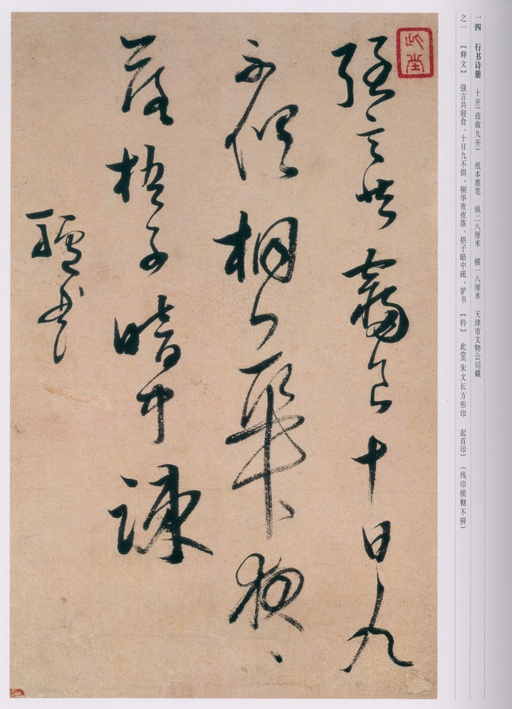 一四 行书诗册 十开(选裁九开) 纸本墨笔 纵二八厘米 横一八厘米 天津市文物公司藏
之一 【释文】 强言共寝食,十日九不俱,桐华夜夜落,梧子暗中疏。驴书 【钤】 此堂(朱文长方形印 起首印)(残印模糊不辨)
此堂
强言共寢食十日九
不俱桐華夜〻
落梧子暗中疎
驢書